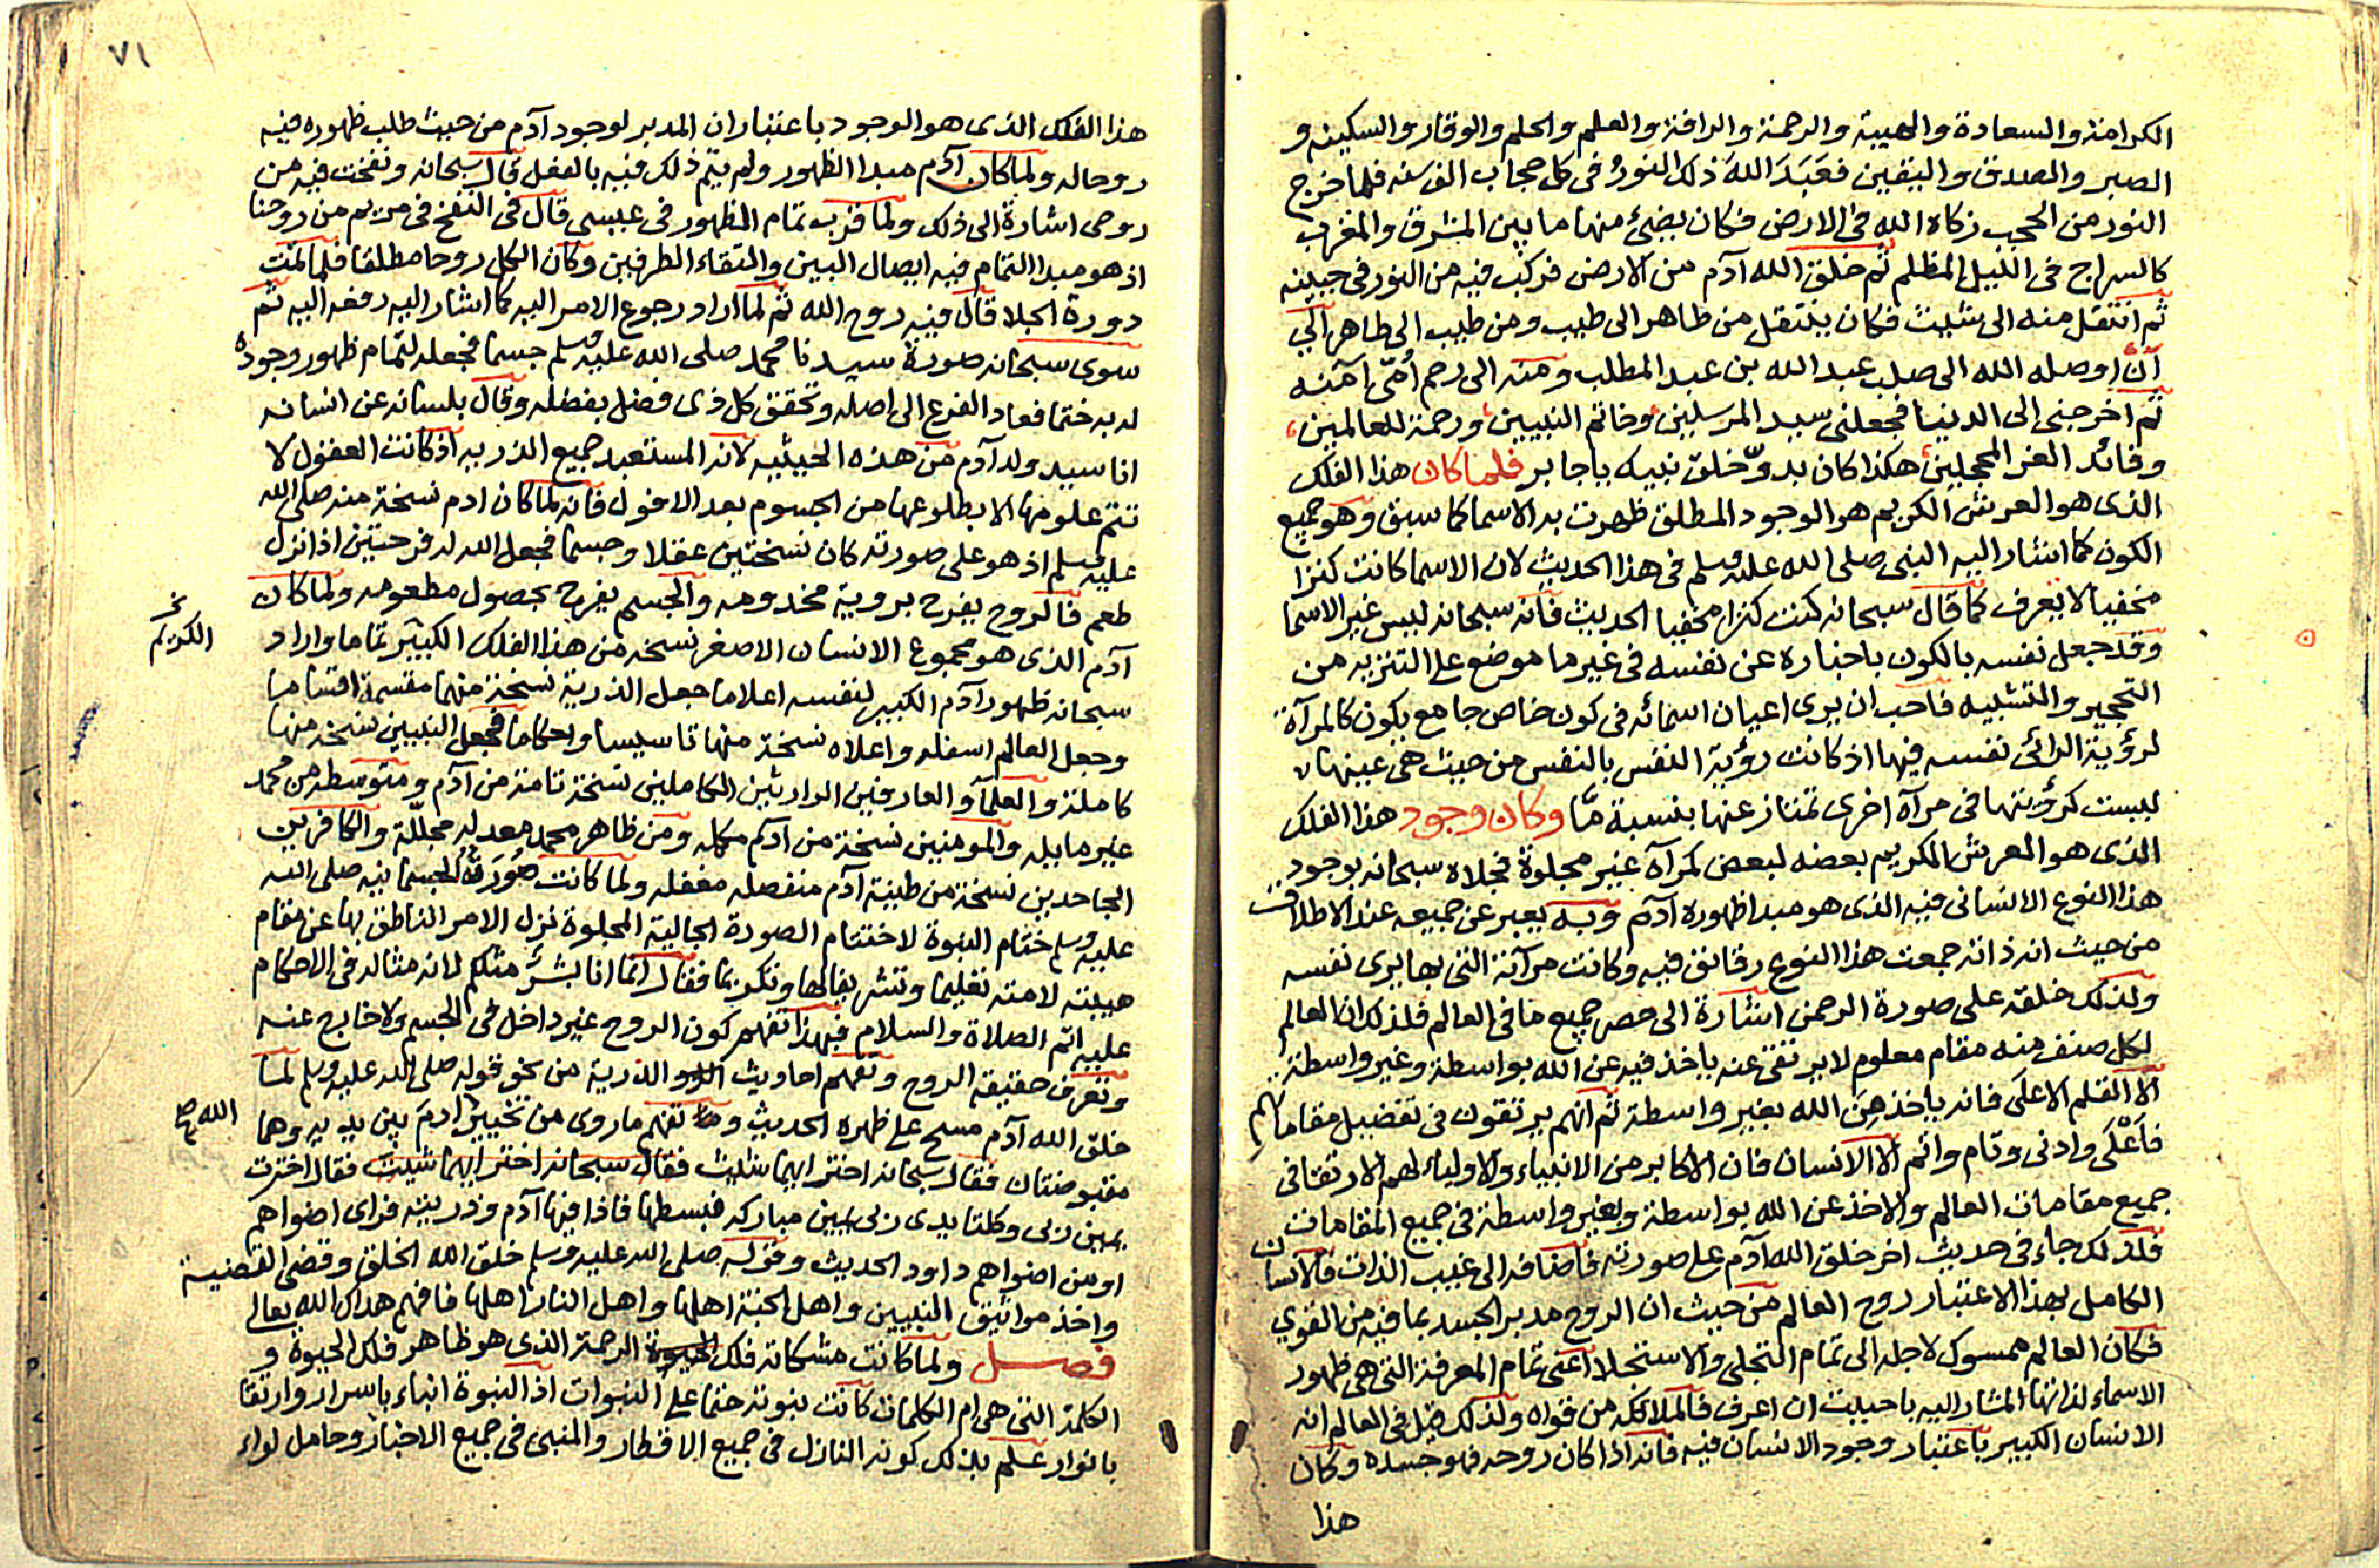 الكرامة والسعادة والهيبة والرحمة والرافة والعلم والحلم والوقار والسكينه و
الصبر والصدق واليقين فعَبَدَ اللهَ ذلك النورُ في كل حجاب الف سنه فلما خرج
النور من الحجب زكاه الله في الارض فكان يضئ منها ما بين المشرق والمغرب
كالسراج في الليل المظلم ثم خلق الله آدم من الارض فركب فيه من النور في جبينه
ثم انتقل منه الى شيث فكان ينتقل من طاهر الى طيب ومن طيب الى طاهر الي
آن اوصله الله الى صلب عبد الله بن عبد المطلب ومنه الى رحم أُمّي آمنه
ثم اخرجني الى الدنيا فجعلني سيد المرسلين وخاتم النبيين ورحمة للعالمين
وقائد الغر المحجلين هكذا كان بدوّ خلق نبيك يا جابر فلما كان هذا الفلك
الذي هو العرش الكريم هو الوجود المطلق ظهرت به الاسما كما سبق وهو جميع
الكون كما اشار اليه النبي صلى الله عليه وسلم في هذا الحديث لان الاسما كانت كنزا
مخفيا لا يعرف كما قال سبحانه كنت كنزا مخفيا الحديث فانه سبحانه ليس غير الاسما
وقد جعل نفسه بالكون باخباره عن نفسه في غير ما موضع على التنزيه من
التحجير والتشبيه فاحب ان يرى اعيان اسمائه في كون خاص جامع يكون كالمرآة
لرؤية الرائى نفسه فيها اذ كانت رؤية النفس بالنفس من حيث هي عينها
ليست كرؤيتها في مرآة اخرى تمتاز عنها بنسبة مّا وكان وجود هذا الفلك
الذي هو العرش الكريم بعضه لبعض كمرآة غير مجلوة فجلاه سبحانه بوجود
هذا النوع الانساني فيه الذي هو مبدا ظهوره آدم وبه يعبر عن جميعه عند الاطلاق
من حيث انه ذاته جمعت هذا النوع رقائق فيه وكانت مرآته التي بها يرى نفسه
ولذلك خلقه على صورة الرحمن اشارة الى حصر جميع ما في العالم فلذلك ان العالم
لكل صنف منه مقام معلوم لا يرتقى عنه ياخذ فيه عن الله بواسطة وغير واسطة
الا القلم الاعلى فانه ياخذ عن الله بغير واسطة ثم انهم يرتقون في تفضيل مقاماتهم
فاعلى وادنى وتام واتم الا الانسان فان الاكابر من الانبياء والاولياء لهم الارتقا في
جميع مقامات العالم والاخذ عن الله بواسطة وبغير واسطة في جميع المقامات
فلذلك جاء في حديث اخر خلق الله آدم على صورته فاضافه الى غيب الذات فالانسان
الكامل بهذا الاعتبار روح العالم من حيث ان الروح مدبر الجسد بما فيه من القوي
فكان العالم ممسوك لاجله الى تمام التجلي والاستجلا اعني تمام المعرفة التي هي ظهور
الاسماء لذاتها المشار اليه باحببت ان اعرف فالملائكه من قواه ولذلك قيل في العالم انه
الانسان الكبير باعتبار وجود الانسان فيه فانه اذا كان روحه فهو جسده وكان
هذا
٧١
هذا الفلك الذي هو الوجود باعتبار ان المدبر لوجود آدم من حيث طلب ظهوره فيه
روحاله ولما كان آدم مبدا الظهور ولم يتم ذلك فيه بالفعل قال سبحانه ونفخت فيه من
روحي اشارة الى ذلك ولما قرب تمام الظهور في عيسى قال في النفخ في مريم من روحنا
اذ هو مبدا التمام فيه ايصال البين والتقاء الطرفين وكان الكل روحا مطلقا فلما تمت
دورة الجلا قال فيه روح الله ثم لما اراد رجوع الامر اليه كما اشار اليه رفعه اليه ثم
سوى سبحانه صورة سيدنا محمد صلى الله عليه وسلم جسما فجعله لتمام ظهور وجوده
له به ختما فعاد الفرع الى اصله وتحقق كل ذي فضل بفضله وقال بلسانه عن انسانه
انا سيد ولد آدم من هذه الحيثيه لانه المستعبد جميع الذريه اذ كانت العقول لا
تتم علومها الا بطلوعها من الجسوم بعد الافول فانه لما كان ادم نسخة منه صلى الله
عليه وسلم اذ هو على صورته كان نسختين عقلا وجسما فجعل الله له فرحتين اذا نزل
طعم فالروح يفرح بروية مخدومه والجسم يفرح بحصول مطعومه ولما كان
آدم الذي هو مجموع الانسان الاصغر نسخه من هذا الفلك الكبير تماما واراد
الكريم
سبحانه ظهور آدم الكبير لنفسه اعلاما جعل الذرية نسخة منها مقسمة اقساما
وجعل العالم اسفله واعلاه نسخة منها تاسيسا واحكاما فجعل النبيين نسخه منها
كاملة والعلما والعارفين الوارثين الكاملين نسخة تامة من آدم ومتوسطه من محمد
غير مايله والمومنين نسخة من آدم مكمله ومن ظاهر محمد معدله مجلّلة والكافرين
الجاحدين نسخة من طينة آدم منفصله مغفله ولما كانت صُورَتُه الجسمانيه صلى الله
عليه وسلم ختام النبوة لاختتام الصورة الجمالية المجلوة نزل الامر الناطق بها عن مقام
هيبته لامته تعليما وتشريفا لها وتكريما فقال انما انا بشر مثلكم لانه مثاله في الاحكام
عليه اتم الصلاة والسلام فبهذا تفهم كون الروح غير داخل في الجسم ولا خارج عنه
وتعرف حقيقة الروح وتفهم احاديث الذر والذرية من نحو قوله صلى الله عليه وسلم لما
خلق الله آدم مسح على ظهره الحديث وتفهم ما روى من تخيير ادم بين يديه وهما
الله
مقبوضتان فقال سبحانه اختر ايهما شئت فقال اخترت
يمين ربي وكلتا يدى ربي يمين مباركه فبسطها فاذا فيها آدم وذريته فراى اضواهم
او من اضواهم داود الحديث وقوله صلى الله عليه وسلم خلق الله الخلق وقضى القضية
واخذ مواثيق النبيين واهل الجنة اهلها واهل النار اهلها فافهم هداك الله تعالى
فصل ولما كانت مشكاته فلك الرحمة الذي هو ظاهر فلك الحيوة و
الكلمة التي هي ام الكلمات كانت نبوته ختما على النبوات اذ النبوة انباء باسرار وارتقا
بانوار علم بذلك كونه النازل في جميع الاقطار والمنبي في جميع الاخبار وحامل لواء